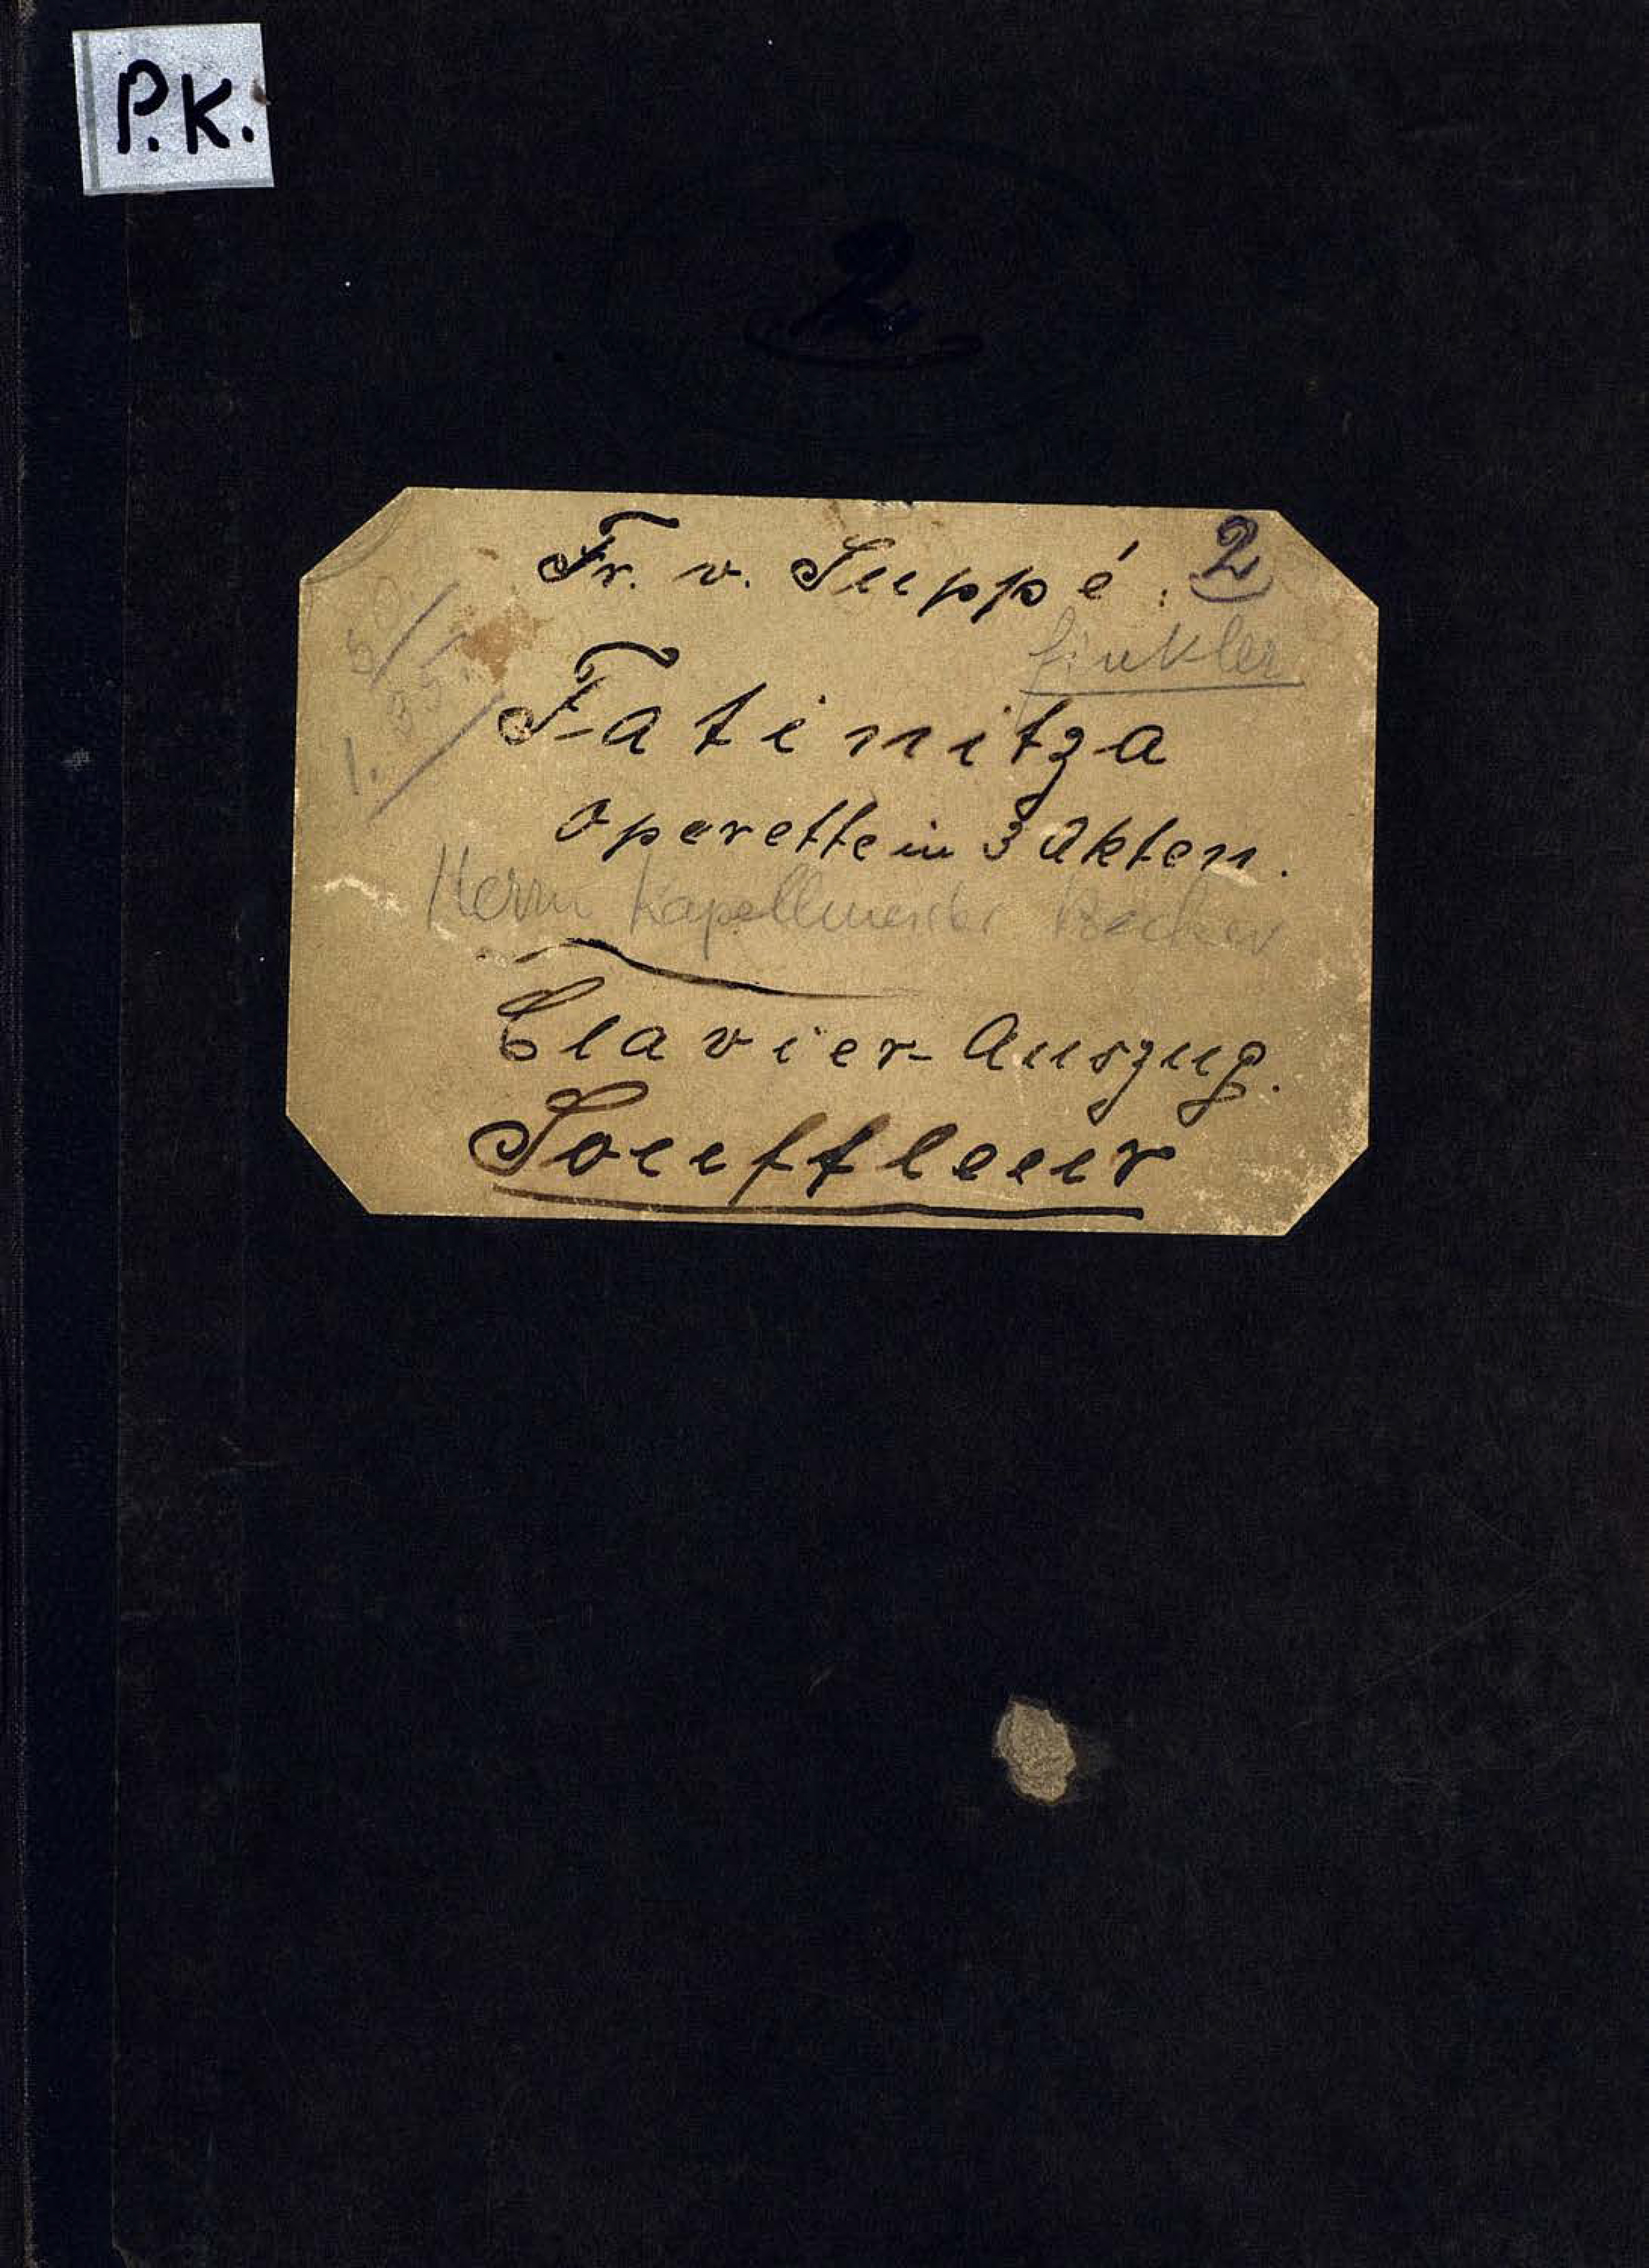 P.K.
2
Fr. v. Suppé: 2
Fatinitza
Operette in 3 Akten.
Herrn Kapellmeister
Clavier-Auszug.
Souffleur